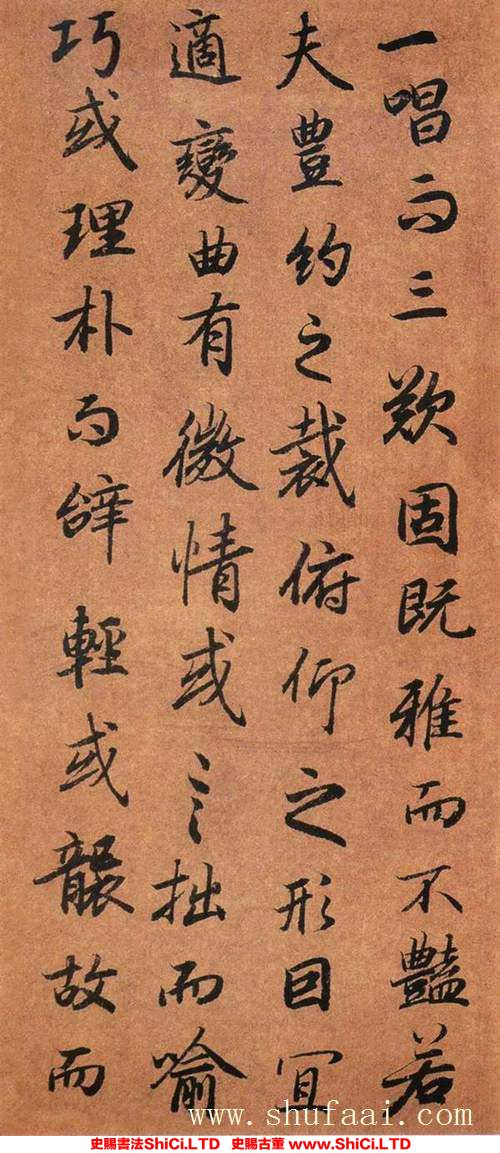 一唱而三歎固既雅而不豔若
夫豐約之裁俯仰之形因宜
適變曲有微情或言拙而喻
巧或理朴而辭輕或襲故而
www.shufaai.com
史賜書法ShiCi.LTD 史賜古董 www.ShiCi.LTD